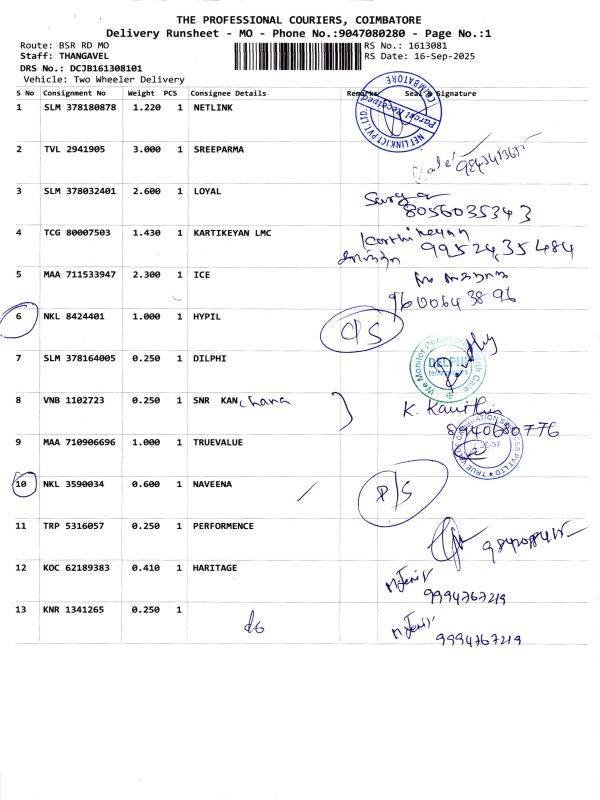 THE PROFESSIONAL COURIERS, COIMBATORE
Delivery Runsheet - MO - Phone No.:9047080280 - Page No.:1
Route: BSR RD MO RS No.: 1613081
Staff: THANGAVEL RS Date: 16-Sep-2025
DRS No.: DCJB161308101
Vehicle: Two Wheeler Delivery
S No Consignment No Weight PCS Consignee Details Remarks Seal & Signature
1 SLM 378180878 1.220 1 NETLINK
NETLINK ICT PVT. LTD. COIMBATORE Parcel Received
2 TVL 2941905 3.000 1 SREEPARMA
3 SLM 378032401 2.600 1 LOYAL
8056035343
4 TCG 80007503 1.430 1 KARTIKEYAN LMC Karthikeyan
9952435484
5 MAA 711533947 2.300 1 ICE
9600643896
6 NKL 8424401 1.000 1 HYPIL
7 SLM 378164005 0.250 1 DILPHI
DELPHI
8 VNB 1102723 0.250 1 SNR KANchana
8940680776
9 MAA 710906696 1.000 1 TRUEVALUE
10 NKL 3590034 0.600 1 NAVEENA
11 TRP 5316057 0.250 1 PERFORMENCE
12 KOC 62189383 0.410 1 HARITAGE
9994767219
13 KNR 1341265 0.250 1 do
9994767219